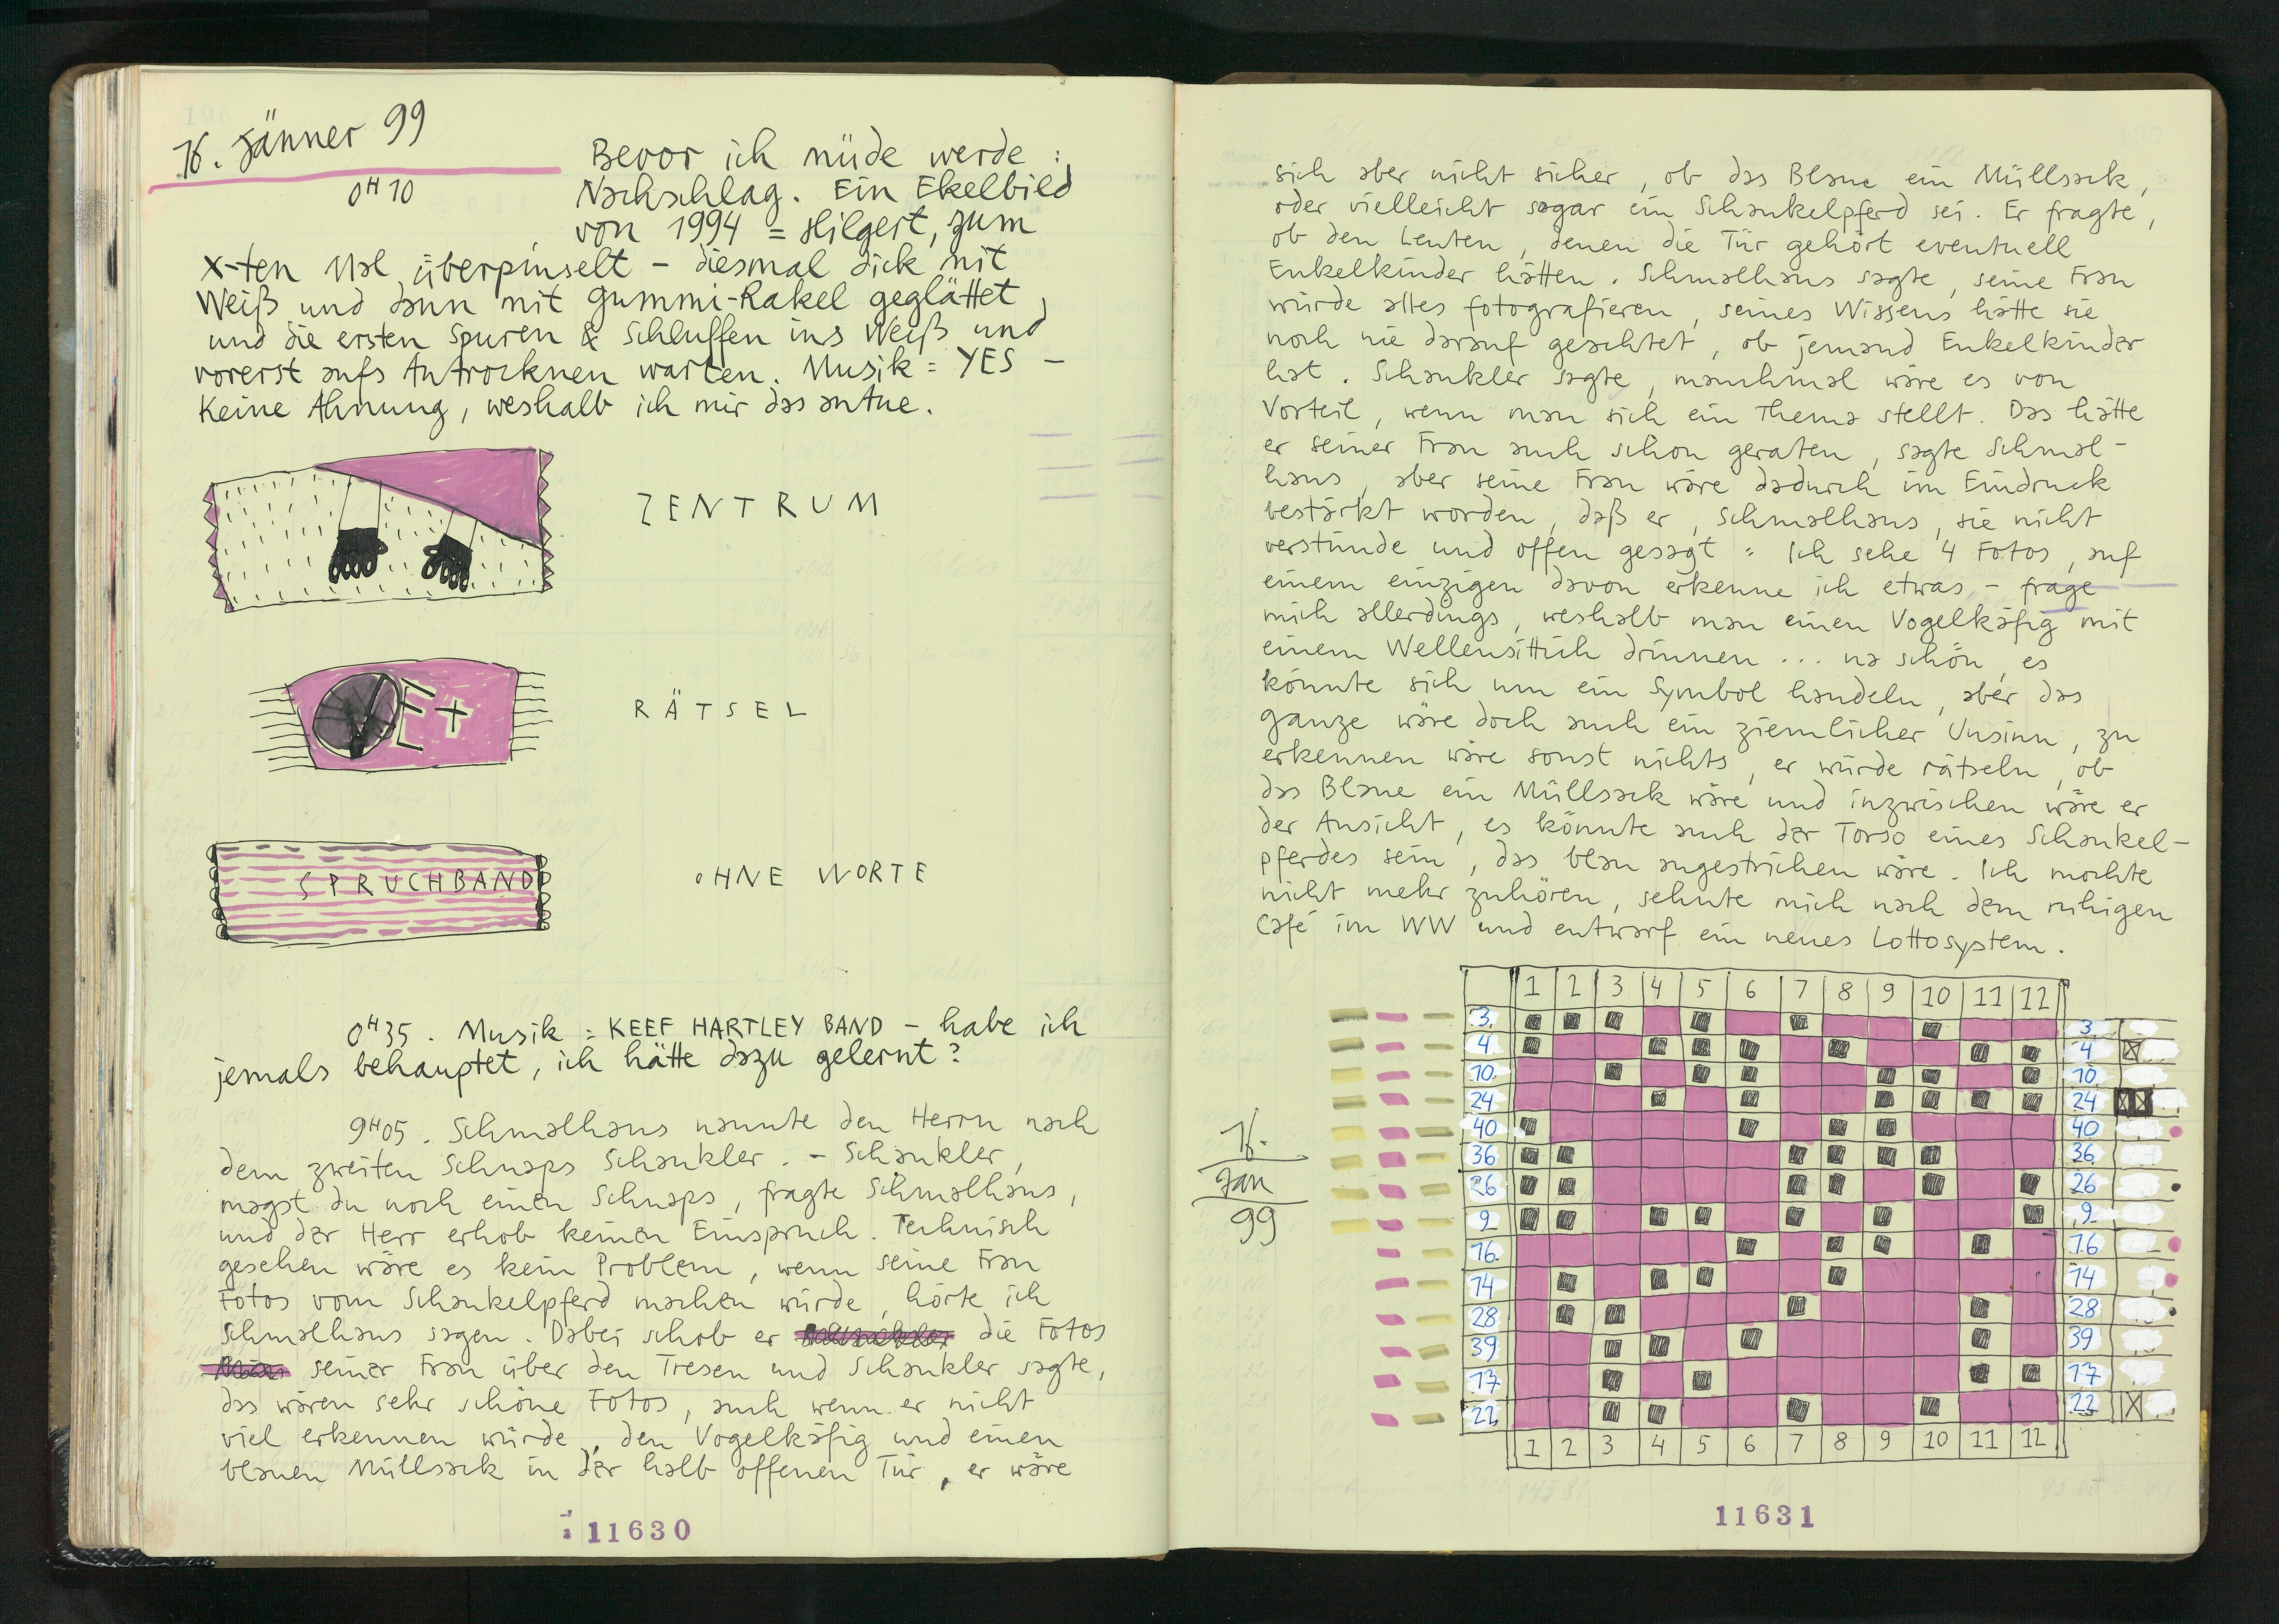 16. Jänner 99
0H10
Bevor ich müde werde :
Nachschlag. Ein Ekelbild
von 1994 = Hilgert, zum
x-ten Mal überpinselt – diesmal dick mit
Weiß und dann mit Gummi-Rakel geglättet,
und die ersten Spuren & Schluffen ins Weiß und
vorerst aufs Antrocknen warten. Musik = YES –
Keine Ahnung, weshalb ich mir das antue.
ZENTRUM
RÄTSEL
SPRUCHBAND
OHNE WORTE
0H35. Musik = KEEF HARTLEY BAND – habe ich
jemals behauptet, ich hätte dazu gelernt?
9H05. Schmalhans nannte den Herrn nach
dem zweiten Schnaps Schaukler. – Schaukler,
magst du noch einen Schnaps, fragte Schmalhans,
und der Herr erhob keinen Einspruch. Technisch
gesehen wäre es kein Problem, wenn seine Frau
Fotos vom Schaukelpferd machen würde, hörte ich
Schmalhans sagen. Dabei schob er die Fotos
seiner Frau über den Tresen und Schaukler sagte,
das wären sehr schöne Fotos, auch wenn er nicht
viel erkennen würde, den Vogelkäfig und einen
blauen Müllsack in der halb offenen Tür, er wäre
11630
sich aber nicht sicher, ob das Blaue ein Müllsack,
oder vielleicht sogar ein Schaukelpferd sei. Er fragte,
ob den Leuten, denen die Tür gehört eventuell
Enkelkinder hätten. Schmalhans sagte, seine Frau
würde alles fotografieren, seines Wissens hätte sie
noch nie darauf geachtet, ob jemand Enkelkinder
hat. Schaukler sagte, manchmal wäre es von
Vorteil, wenn man sich ein Thema stellt. Das hätte
er seiner Frau auch schon geraten, sagte Schmal-
hans, aber seine Frau wäre dadurch im Eindruck
bestärkt worden, daß er, Schmalhans, sie nicht
verstünde und offen gesagt = Ich sehe 4 Fotos, auf
einem einzigen davon erkenne ich etwas – frage
mich allerdings, weshalb man einen Vogelkäfig mit
einem Wellensittich drinnen ... na schön, es
könnte sich um ein Symbol handeln, aber das
ganze wäre doch auch ein ziemlicher Unsinn, zu
erkennen wäre sonst nichts, er würde rätseln, ob
das Blaue ein Müllsack wäre und inzwischen wäre er
der Ansicht, es könnte auch der Torso eines Schaukel-
pferdes sein, das blau angestrichen wäre. Ich mochte
nicht mehr zuhören, sehnte mich nach dem ruhigen
Café im WW und entwarf ein neues Lottosystem.
16.
Jan
99
1 2 3 4 5 6 7 8 9 10 11 12
3 3
4 4
10 10
24 24
40 40
36 36
26 26
9 9
16 16
14 14
28 28
39 39
17 17
22 22
1 2 3 4 5 6 7 8 9 10 11 12
11631